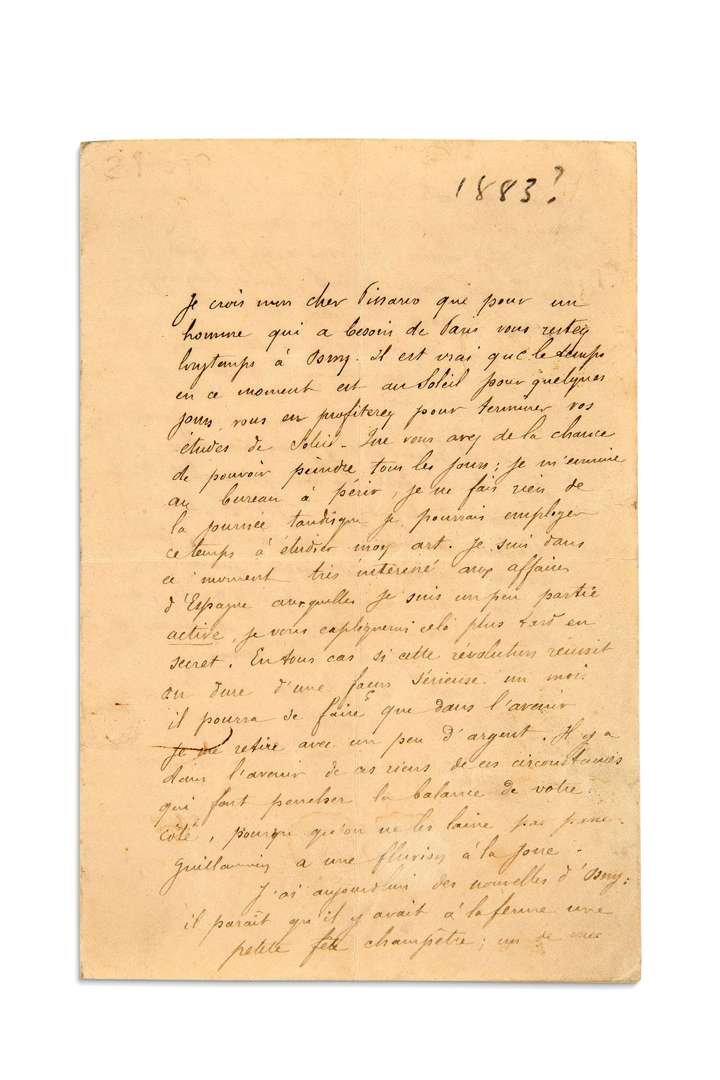 1883?
Je crois mon cher Pissarro que pour un
homme qui a besoin de Paris vous restez
longtemps à Osny. il est vrai que le temps
en ce moment est au Soleil pour quelques
jours, vous en profiterez pour terminer vos
études de Soleil - Que vous avez de la chance
de pouvoir peindre tous les jours ; je m'ennuie
au bureau à périr, je ne fais rien de
la journée tandisque je pourrais employer
ce temps à étudier mon art. Je suis dans
ce moment très intéressé aux affaires
d'Espagne auxquelles je suis un peu partie
active, je vous expliquerai celà plus tard en
secret. En tous cas si cette révolution réussit
ou dure d'une façon sérieuse un mois
il pourra se faire que dans l'avenir
je me retire avec un peu d'argent. Il y a
dans l'avenir de ces riens de ces circonstances
qui font pencher la balance de votre
côté, pourvu qu'on ne les laisse pas
Guillaumin a une fluxion à la joue -
J'ai aujourdhui des nouvelles d'Osny ;
il paraît qu'il y avait à la ferme une
petite fête champêtre ; un de mes